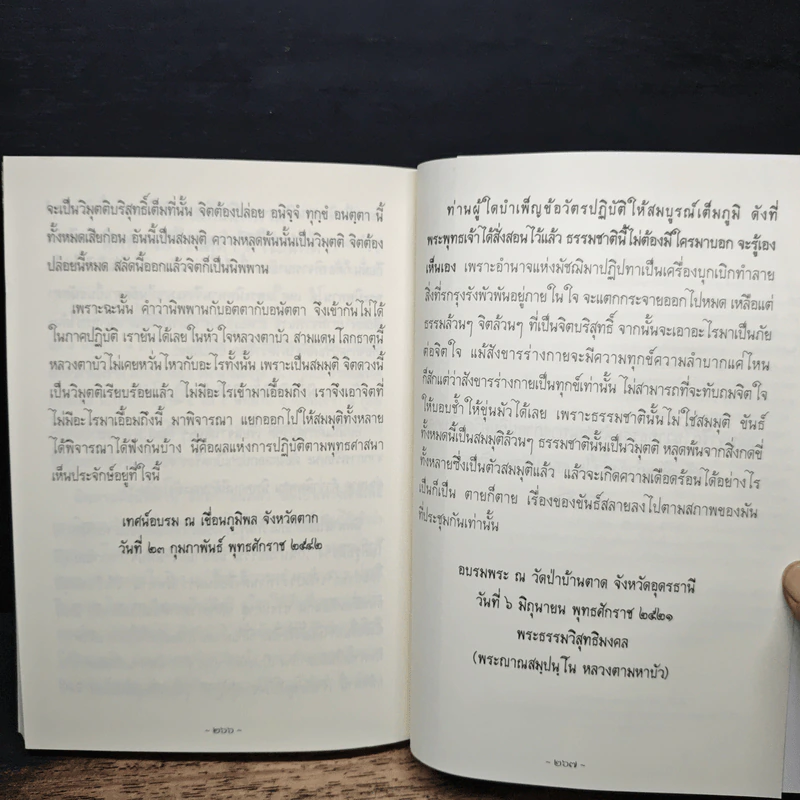 จะเป็นวิมุตติบริสุทธิ์เต็มที่นั้น จิตต้องปล่อย อนิจฺจํ ทุกฺขํ อนตฺตา นี้
ทั้งหมดเสียก่อน อันนี้เป็นสมมุติ ความหลุดพ้นนั้นเป็นวิมุตติ จิตต้อง
ปล่อยนี้หมด สลัดนี้ออกแล้วจิตก็เป็นนิพพาน
เพราะฉะนั้น คำว่านิพพานกับอัตตากับอนัตตา จึงเข้ากันไม่ได้
ในภาคปฏิบัติ เรายันได้เลยในหัวใจหลวงตาบัว สามแดนโลกธาตุนี้
หลวงตาบัวไม่เคยหวั่นไหวกับอะไรทั้งนั้น เพราะเป็นสมมุติ จิตดวงนี้
เป็นวิมุตติเรียบร้อยแล้ว ไม่มีอะไรเข้ามาเอื้อมถึง เราจึงเอาจิตที่
ไม่มีอะไรมาเอื้อมถึงนี้ มาพิจารณา แยกออกไปให้สมมุติทั้งหลาย
ได้พิจารณาได้ฟังกันบ้าง นี่คือผลแห่งการปฏิบัติตามพุทธศาสนา
เห็นประจักษ์อยู่ที่ใจนี้
เทศน์อบรม ณ เขื่อนภูมิพล จังหวัดตาก
วันที่ ๒๓ กุมภาพันธ์ พุทธศักราช ๒๕๔๒
- ๒๖๖ -
ท่านผู้ใดบำเพ็ญข้อวัตรปฏิบัติให้สมบูรณ์เต็มภูมิ ดังที่
พระพุทธเจ้าได้สั่งสอนไว้แล้ว ธรรมชาตินี้ไม่ต้องมีใครมาบอก จะรู้เอง
เห็นเอง เพราะอำนาจแห่งมัชฌิมาปฏิปทาเป็นเครื่องบุกเบิกทำลาย
สิ่งที่รกรุงรังพัวพันอยู่ภายในใจ จะแตกกระจายออกไปหมด เหลือแต่
ธรรมล้วนๆ จิตล้วนๆ ที่เป็นจิตบริสุทธิ์ จากนั้นจะเอาอะไรมาเป็นภัย
ต่อจิตใจ แม้สังขารร่างกายจะมีความทุกข์ความลำบากแค่ไหน
ก็สักแต่ว่าสังขารร่างกายเป็นทุกข์เท่านั้น ไม่สามารถที่จะทับถมจิตใจ
ให้บอบช้ำให้ขุ่นมัวได้เลย เพราะธรรมชาตินั้นไม่ใช่สมมุติ ขันธ์
ทั้งหมดนี้เป็นสมมุติล้วนๆ ธรรมชาตินั้นเป็นวิมุตติ หลุดพ้นจากสิ่งกดขี่
ทั้งหลายซึ่งเป็นตัวสมมุติแล้ว แล้วจะเกิดความเดือดร้อนได้อย่างไร
เป็นก็เป็น ตายก็ตาย เรื่องของขันธ์สลายลงไปตามสภาพของมัน
ที่ประชุมกันเท่านั้น
อบรมพระ ณ วัดป่าบ้านตาด จังหวัดอุดรธานี
วันที่ ๖ มิถุนายน พุทธศักราช ๒๕๒๑
พระธรรมวิสุทธิมงคล
(พระญาณสมฺปนฺโน หลวงตามหาบัว)
- ๒๖๗ -